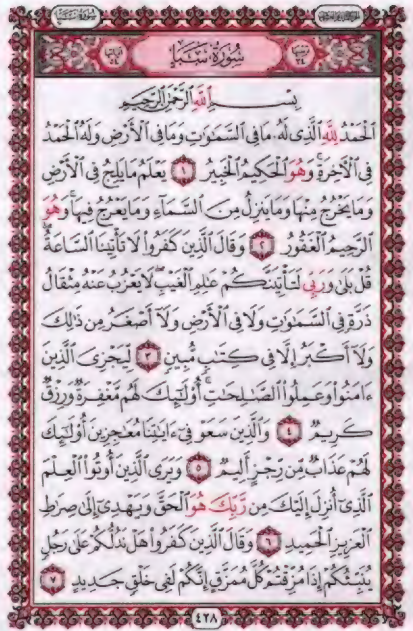 سُورَةُ سَبَإٍ
سُورَةُ سَبَإٍ
بِسْمِ ٱللَّهِ ٱلرَّحْمَٰنِ ٱلرَّحِيمِ
ٱلْحَمْدُ لِلَّهِ ٱلَّذِى لَهُۥ مَا فِى ٱلسَّمَٰوَٰتِ وَمَا فِى ٱلْأَرْضِ وَلَهُ ٱلْحَمْدُ
فِى ٱلْأَخِرَةِ ۚ وَهُوَ ٱلْحَكِيمُ ٱلْخَبِيرُ ١ يَعْلَمُ مَا يَلِجُ فِى ٱلْأَرْضِ
وَمَا يَخْرُجُ مِنْهَا وَمَا يَنزِلُ مِنَ ٱلسَّمَآءِ وَمَا يَعْرُجُ فِيهَا ۚ وَهُوَ
ٱلرَّحِيمُ ٱلْغَفُورُ ٢ وَقَالَ ٱلَّذِينَ كَفَرُوا۟ لَا تَأْتِينَا ٱلسَّاعَةُ ۖ
قُلْ بَلَىٰ وَرَبِّى لَتَأْتِيَنَّكُمْ عَٰلِمِ ٱلْغَيْبِ ۖ لَا يَعْزُبُ عَنْهُ مِثْقَالُ
ذَرَّةٍ فِى ٱلسَّمَٰوَٰتِ وَلَا فِى ٱلْأَرْضِ وَلَآ أَصْغَرُ مِن ذَٰلِكَ
وَلَآ أَكْبَرُ إِلَّا فِى كِتَٰبٍ مُّبِينٍ ٣ لِّيَجْزِىَ ٱلَّذِينَ
ءَامَنُوا۟ وَعَمِلُوا۟ ٱلصَّٰلِحَٰتِ ۚ أُو۟لَٰٓئِكَ لَهُم مَّغْفِرَةٌ وَرِزْقٌ
كَرِيمٌ ٤ وَٱلَّذِينَ سَعَوْ فِىٓ ءَايَٰتِنَا مُعَٰجِزِينَ أُو۟لَٰٓئِكَ
لَهُمْ عَذَابٌ مِّن رِّجْزٍ أَلِيمٌ ٥ وَيَرَى ٱلَّذِينَ أُوتُوا۟ ٱلْعِلْمَ
ٱلَّذِىٓ أُنزِلَ إِلَيْكَ مِن رَّبِّكَ هُوَ ٱلْحَقَّ وَيَهْدِىٓ إِلَىٰ صِرَٰطِ
ٱلْعَزِيزِ ٱلْحَمِيدِ ٦ وَقَالَ ٱلَّذِينَ كَفَرُوا۟ هَلْ نَدُلُّكُمْ عَلَىٰ رَجُلٍ
يُنَبِّئُكُمْ إِذَا مُزِّقْتُمْ كُلَّ مُمَزَّقٍ إِنَّكُمْ لَفِى خَلْقٍ جَدِيدٍ ٧
٤٢٨